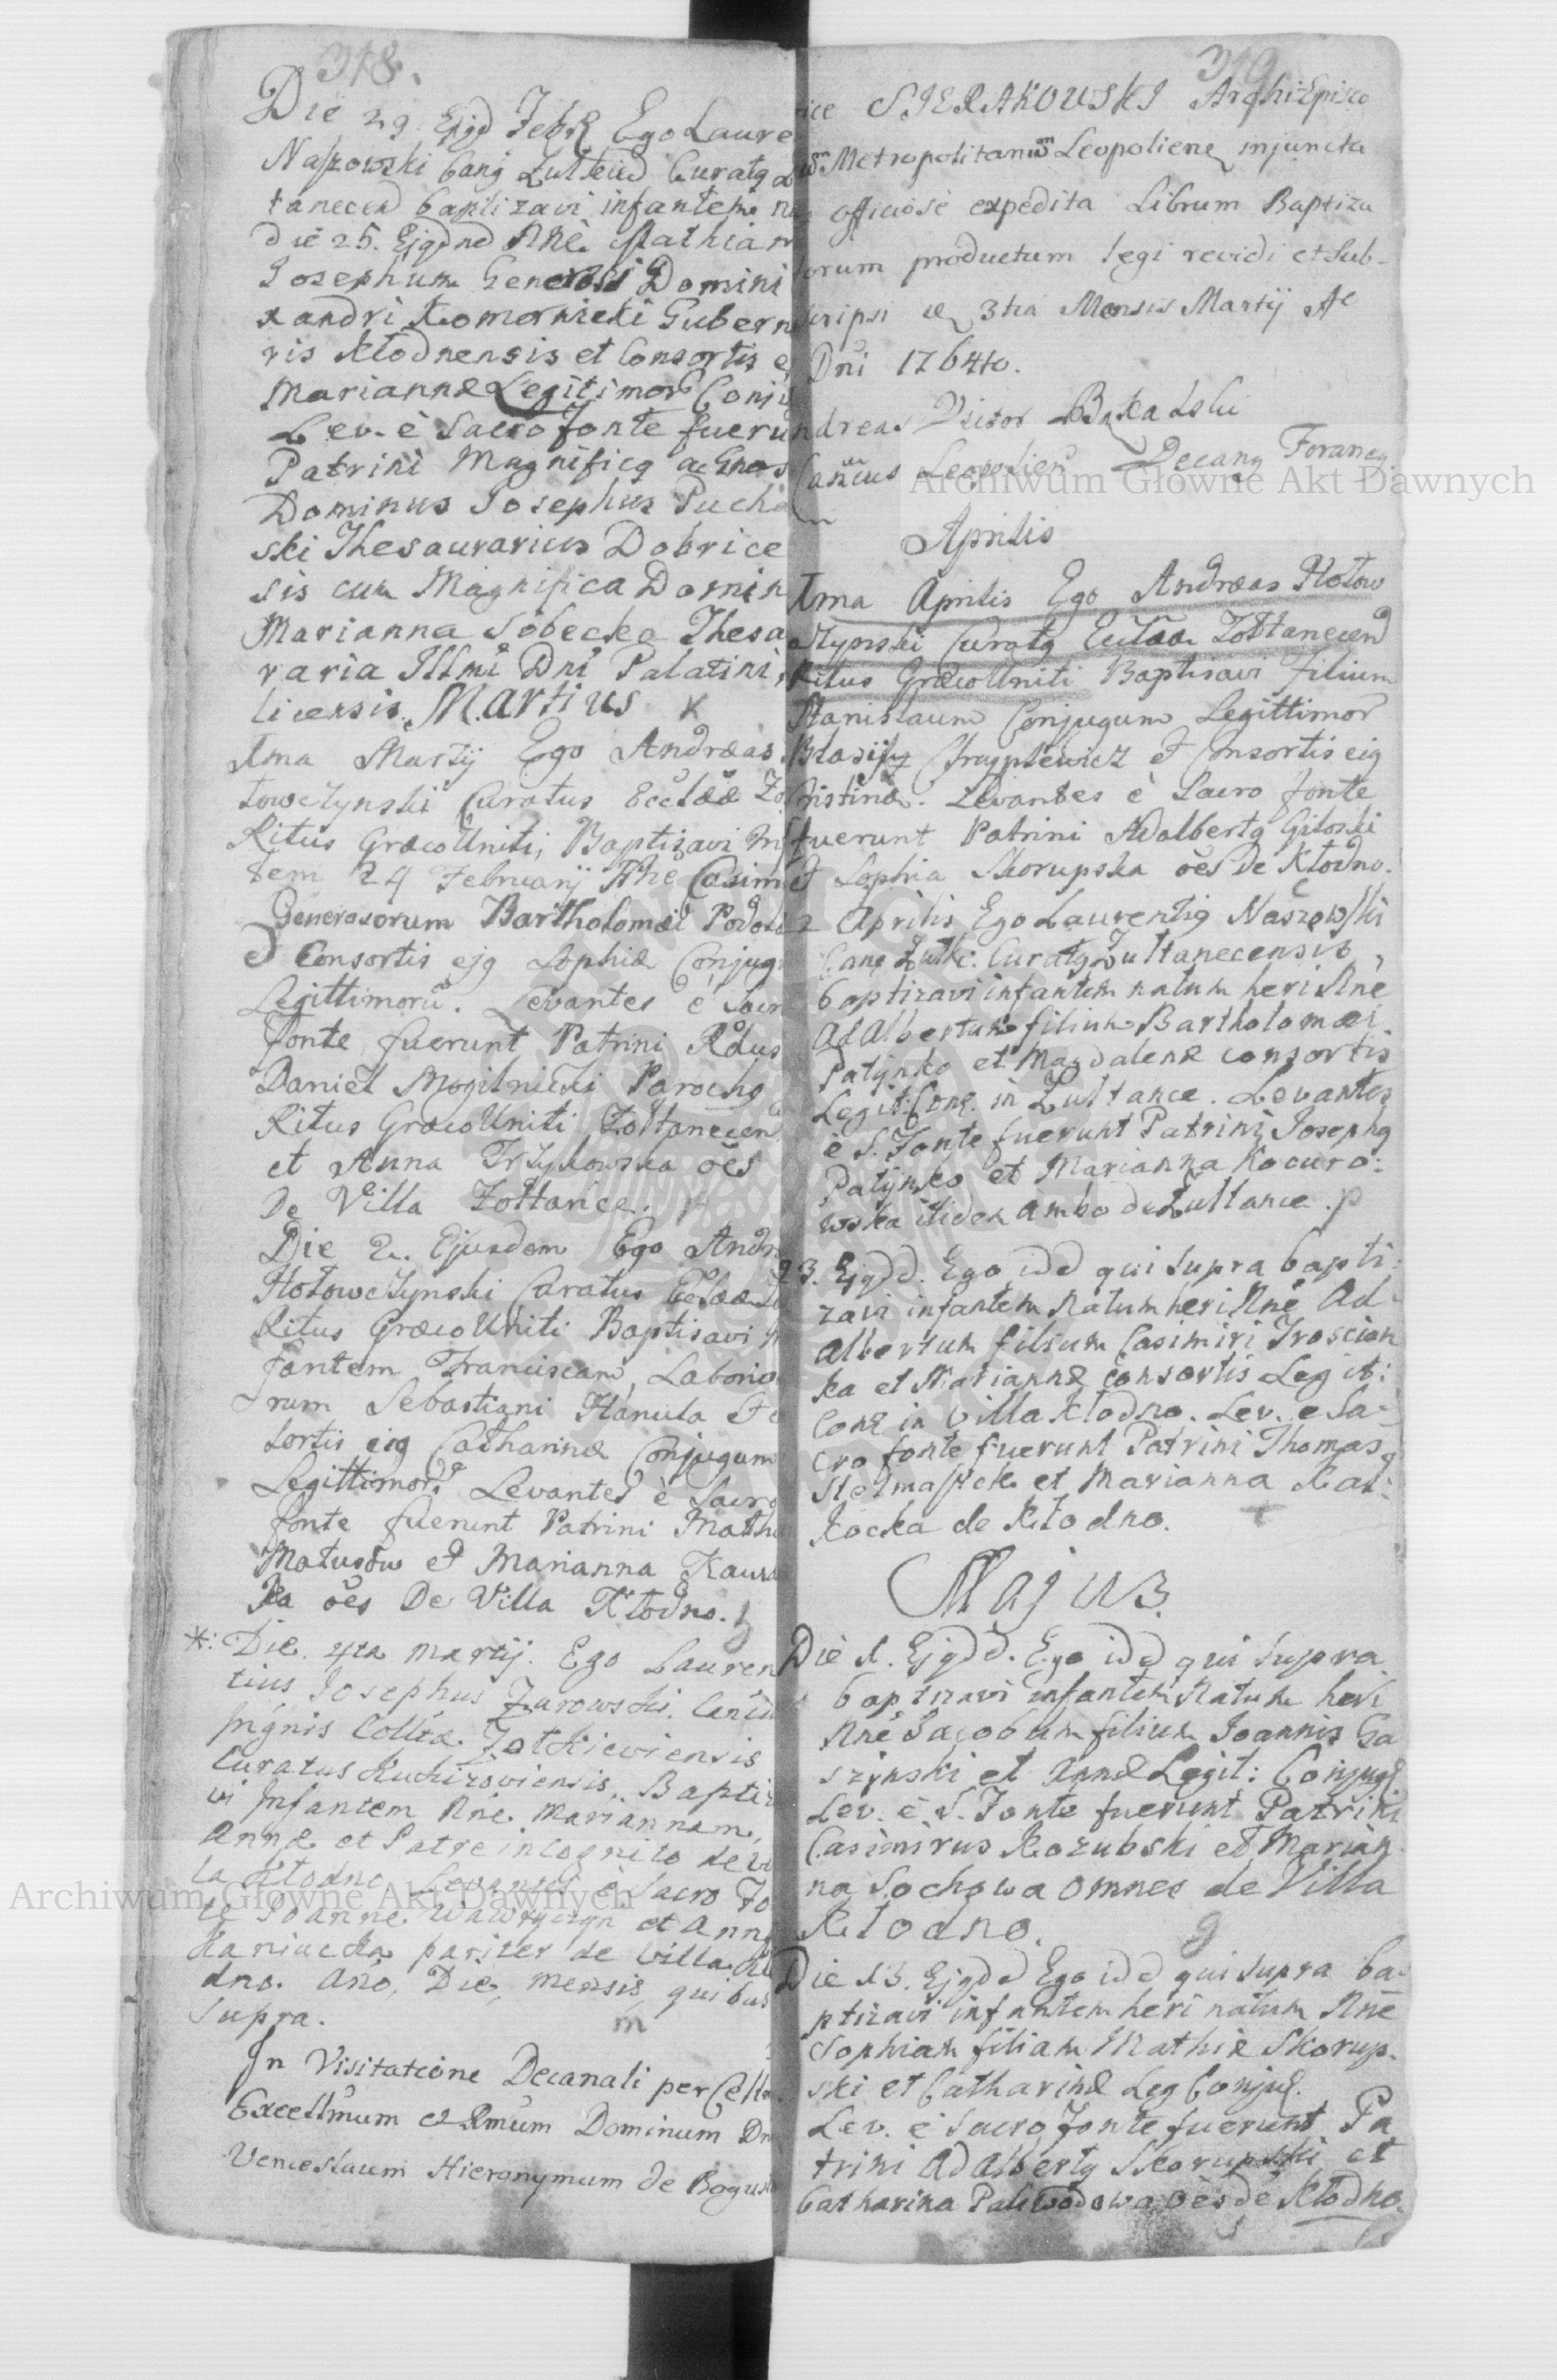 318.
Die 29. Ejqd Febr Ego Laure
Naszowski Canq Zulkien Curatq
tanecen baptizavi infantem
die 25. Ejqdnd Nne Mathiam
Josephum Generosi Domini
xandri Komornicki Gubern
ris Kłodnensis et Consortis
Mariannæ Legitimor Conju
Lev. è Sacro fonte fuerun
Patrini Magnificq ac
Dominus Josephus Pucha
ski Thesaurarius Dobrice
sis cum Magnifica Domin
Marianna Sobecka Thesa
raria Illmi Dni Palatini
licensis. Martius x
1ma Martij Ego Andræas
towczynski Curatus Ecclææ Zo
Ritus GræcoUniti, Baptizavi Inf
tem 24 Februarij Nne Casim
Generosorum Bartholomæi Podol
et Consortis ejq Sophiæ Conjug
Legittimorũ. Levantes è Sacr
fonte fuerunt Patrini Rdus
Daniel Mogilnicki Parochq
Ritus GræcoUniti Zołtanecen
et Anna Trzykowska oes
De Villa Zołtance.
Die 2. Ejusdem Ego Andr
Hołowczynski Curatus Ecclææ
Ritus GræcoUniti Baptisavi
fantem Franciscam, Laborio
rum Sebastiani Hanula et
sortis eiq Catharinæ Conjugum
Legittimor. Levantes è Sacro
fonte fuerunt Patrini Math
Matusow et Marianna Kaws
ka oes De Villa Kłodno.
*: Die 4ta Martij. Ego Lauren
tius Josephus Zarowski. Canc
Insignis Colltæ Zołkieviensis
Curatus Kukizoviensis, Baptiz
vi Infantem Nne Mariannam,
Annæ et Patre incognito de Vi
la Kłodno, Levantes è Sacro Fo
te Joanne Wawryczyn et Anna
Haniucka pariter de Villa Kł
dno. Año, Die, mensis, quibus
supra.
In Visitatione Decanali per Cells
Excellmum et Rmum Dominum Dn
Venceslaum Hieronymum de Bogus
319
SIERAKOWSKI Archi Episco
Metropolitanum Leopoliens injuncta
officiosè expedita Librum Baptiza
torum productum legi revidi et sub-
scripsi de 3tia Mensis Martij Ae
Dni 1764to.
ndreas Victor
Canus Leopolien Decanq Foraneq
Aprilis
1ma Aprilis Ego Andræas Hołow
czynski Curatq Ecclææ Zołtanecen
Ritus GræcoUniti Baptisavi Filium
Stanislaum Conjugum Legittimor
Blasij Chrzysztewicz et Consortis eiq
Cristinæ. Levantes è Sacro fonte
fuerunt Patrini Adalbertq Giłoski
et Sophia Skorupska oes De Kłodno.
2 Aprilis Ego Laurentiq Naszowski
Canq Zulki. Curatq Zultanecensis,
baptizavi infantem natum heri Nne
Adalbertum filium Bartholomæi
Patynko et Magdalenæ consortis
Legit: Conq. in Zultance. Levantes
è S. Fonte fuerunt Patrini Josephq
Patynko et Marianna Kocuro:
wska itidem ambo de Zultance.
23. Ejqdd. Ego idd qui supra bapti:
zavi infantem natum heri Nne Ad-
albertum filium Casimiri Troscian
ka et Mariannæ consortis Legit:
Conq in Villa Kłodno. Lev. e Sa-
cro fonte fuerunt Patrini Thomas
Stelmaszek et Marianna Kal:
kocka de Kłodno.
Majus.
Die 1. Ejqdd. Ego idd qui supra
baptizavi infantem Natum heri
Nne Jacobum filium Joannis Ga
szynski et Annæ Legit: Conjugq.
Lev. è S. Fonte fuerunt Patrini
Casimirus Kozubski et Marian
na Sochowa omnes de Villa
Kłodno.
Die 13. Ejqdd Ego idd qui supra ba
ptizavi infantem heri natum Nne
Sophiam filiam Mathiæ Skorup-
ski et Catharinæ Leg Conjuq.
Lev. è Sacro fonte fuerunt Pa
trini Adalbertq Skorupski et
Catharina Paliwodowa oes de Kłodno.
Archiwum Główne Akt Dawnych
Archiwum Główne Akt Dawnych